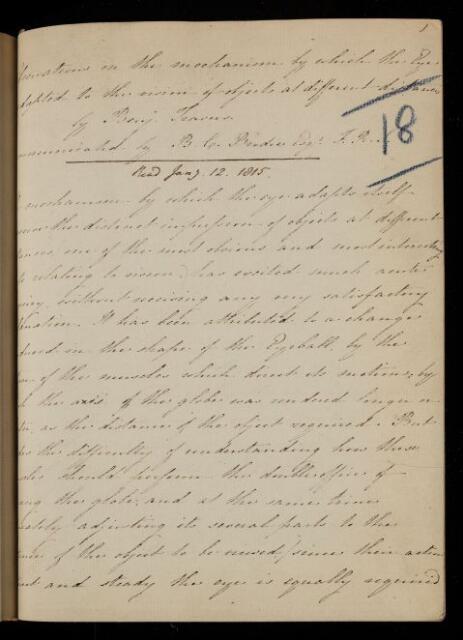 1
servations on the mechanism by which the Eye
dapted to the vision of objects at different distances
by Benj. Travers.
18
ommunicated by B. C. Brodie Esqr. F. R.
Read Jany. 12. 1815.
mechanism by which the eye adapts itself
the distinct impression of objects at different
one of the most obvious and most interesting
relating to vision, has excited much
without receiving any very satisfactory
It has been attributed to a change
in the shape of the Eyeball by the
of the muscles which direct its motions; by
the axis of the globe was rendered longer
as the distance of the object required. But
the difficulty of understanding how these
should perform the double office of
the globe, and at the same time
adjusting its several parts to the
of the object to be viewed, since their action
and steady the eye is equally required